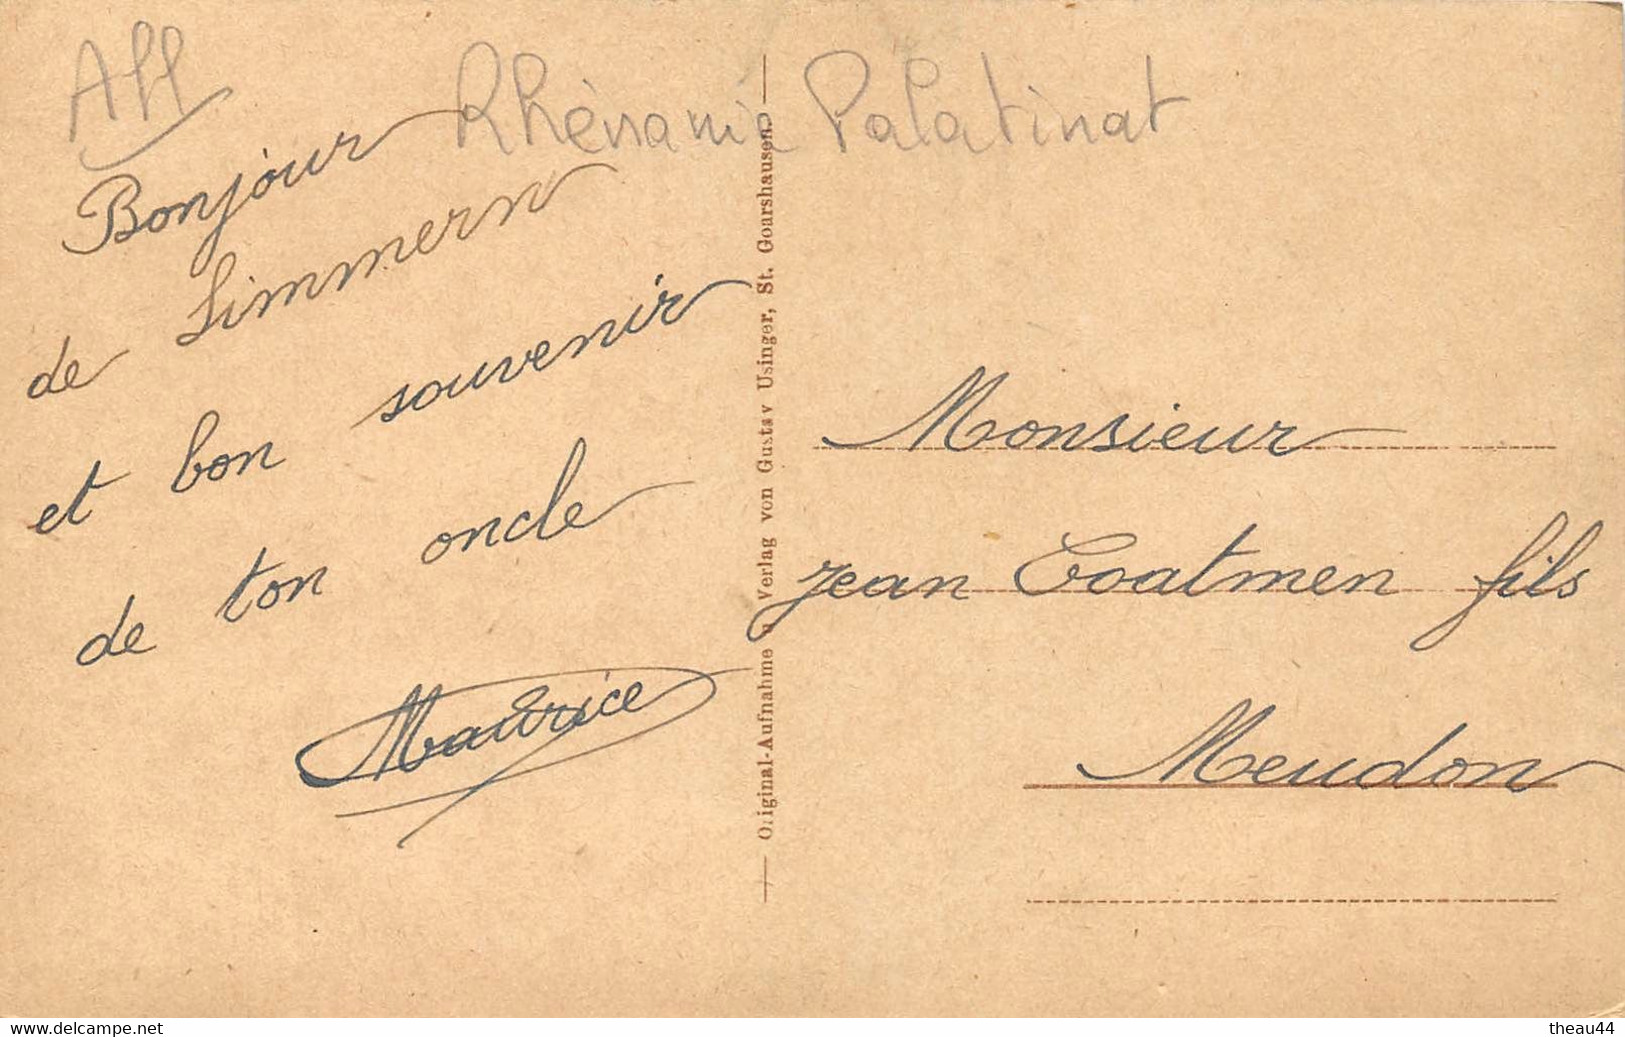 All
Rhénanie Palatinat
Bonjour
de Simmern
et bon souvenir
de ton oncle
Maurice
Original-Aufnahme u Verlag von Gustav Usinger, St. Goarshausen.
Monsieur
Jean Coatmen fils
Meudon
www.delcampe.net
theau44